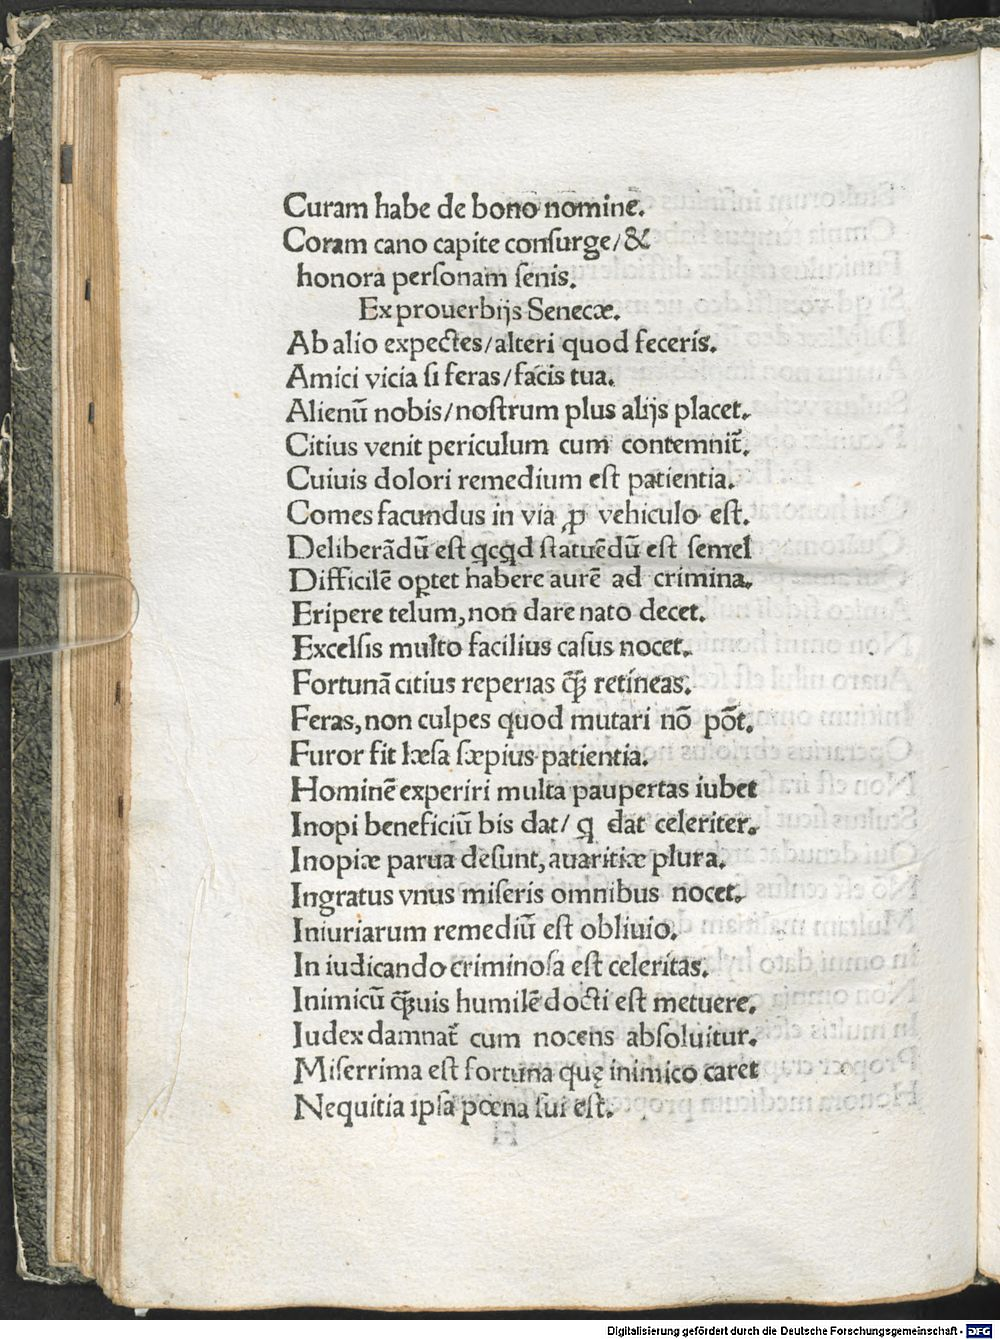 Curam habe de bono nomine.
Coram cano capite conſurge/&
honora perſonam ſenis.
Ex prouerbijs Senecæ.
Ab alio expectes/alteri quod feceris.
Amici vicia ſi feras/facis tua.
Alienū nobis/noſtrum plus alijs placet.
Citius venit periculum cum contemnit̄.
Cuiuis dolori remedium eſt patientia.
Comes facundus in via ꝓ vehiculo eſt.
Deliberādū eſt qcqd ſtatuēdū eſt ſemel
Difficilē oꝑtet habere aurē ad crimina.
Eripere telum, non dare nato decet.
Excelſis multo facilius caſus nocet.
Fortunā citius reperias q̄ꝫ retineas.
Feras, non culpes quod mutari nō pōt.
Furor fit læſa ſæpius patientia.
Hominē experiri multa paupertas iubet
Inopi beneficiū bis dat/ q dat celeriter.
Inopiæ parua deſunt, auaritiæ plura.
Ingratus vnus miſeris omnibus nocet.
Iniuriarum remediū eſt obliuio.
In iudicando criminoſa eſt celeritas.
Inimicū q̄ꝫuis humilē docti eſt metuere.
Iudex damnat̄ cum nocens abſoluitur.
Miſerrima eſt fortuna quę inimico caret
Nequitia ipſa pœna ſui eſt.
Digitalisierung gefördert durch die Deutsche Forschungsgemeinschaft - DFG